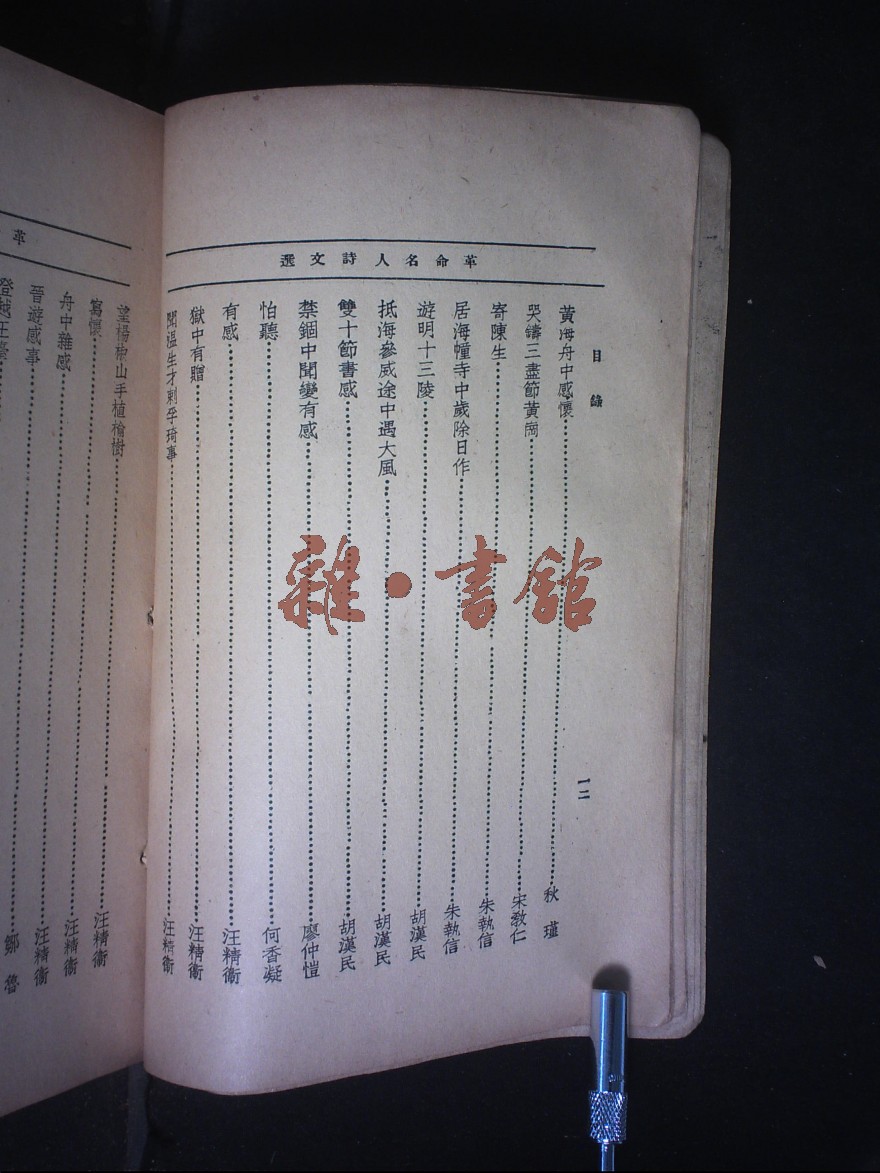 革命名人詩文選
目錄
一二
黃海舟中感懷……秋瑾
哭鑄三盡節黃崗……宋敎仁
寄陳生……朱執信
居海幢寺中歲除日作……朱執信
遊明十三陵……胡漢民
抵海參威途中遇大風……胡漢民
雙十節書感……胡漢民
禁錮中聞變有感……廖仲愷
怕聽……何香凝
有感……汪精衞
獄中有贈……汪精衞
聞溫生才刺孚琦事……汪精衞
革
望楊椒山手植榆樹……汪精衞
寫懷……汪精衞
舟中雜感……汪精衞
晉遊感事……鄒魯
登越王臺
雜·書館